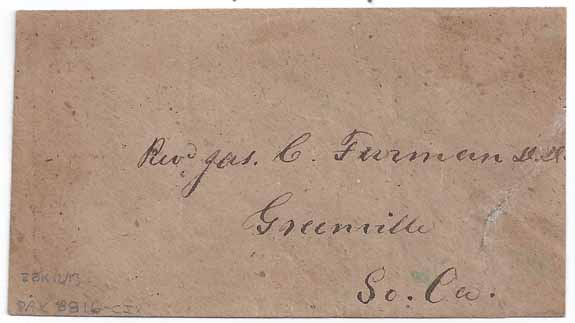 Revd Jas. C. Furman D.D.
Greenville
So. Ca.